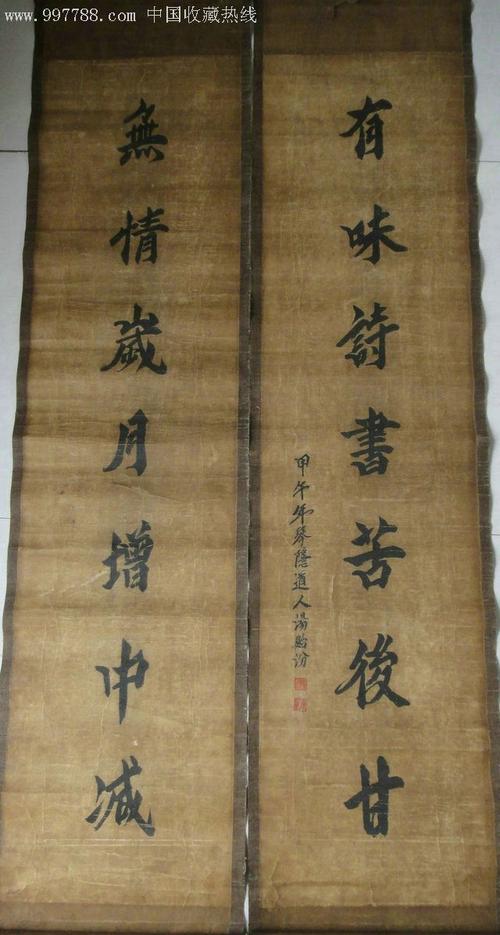 www.997788.com 中国收藏热线
有味詩書苦後甘
甲午年琴隱道人湯貽汾
無情歲月增中減